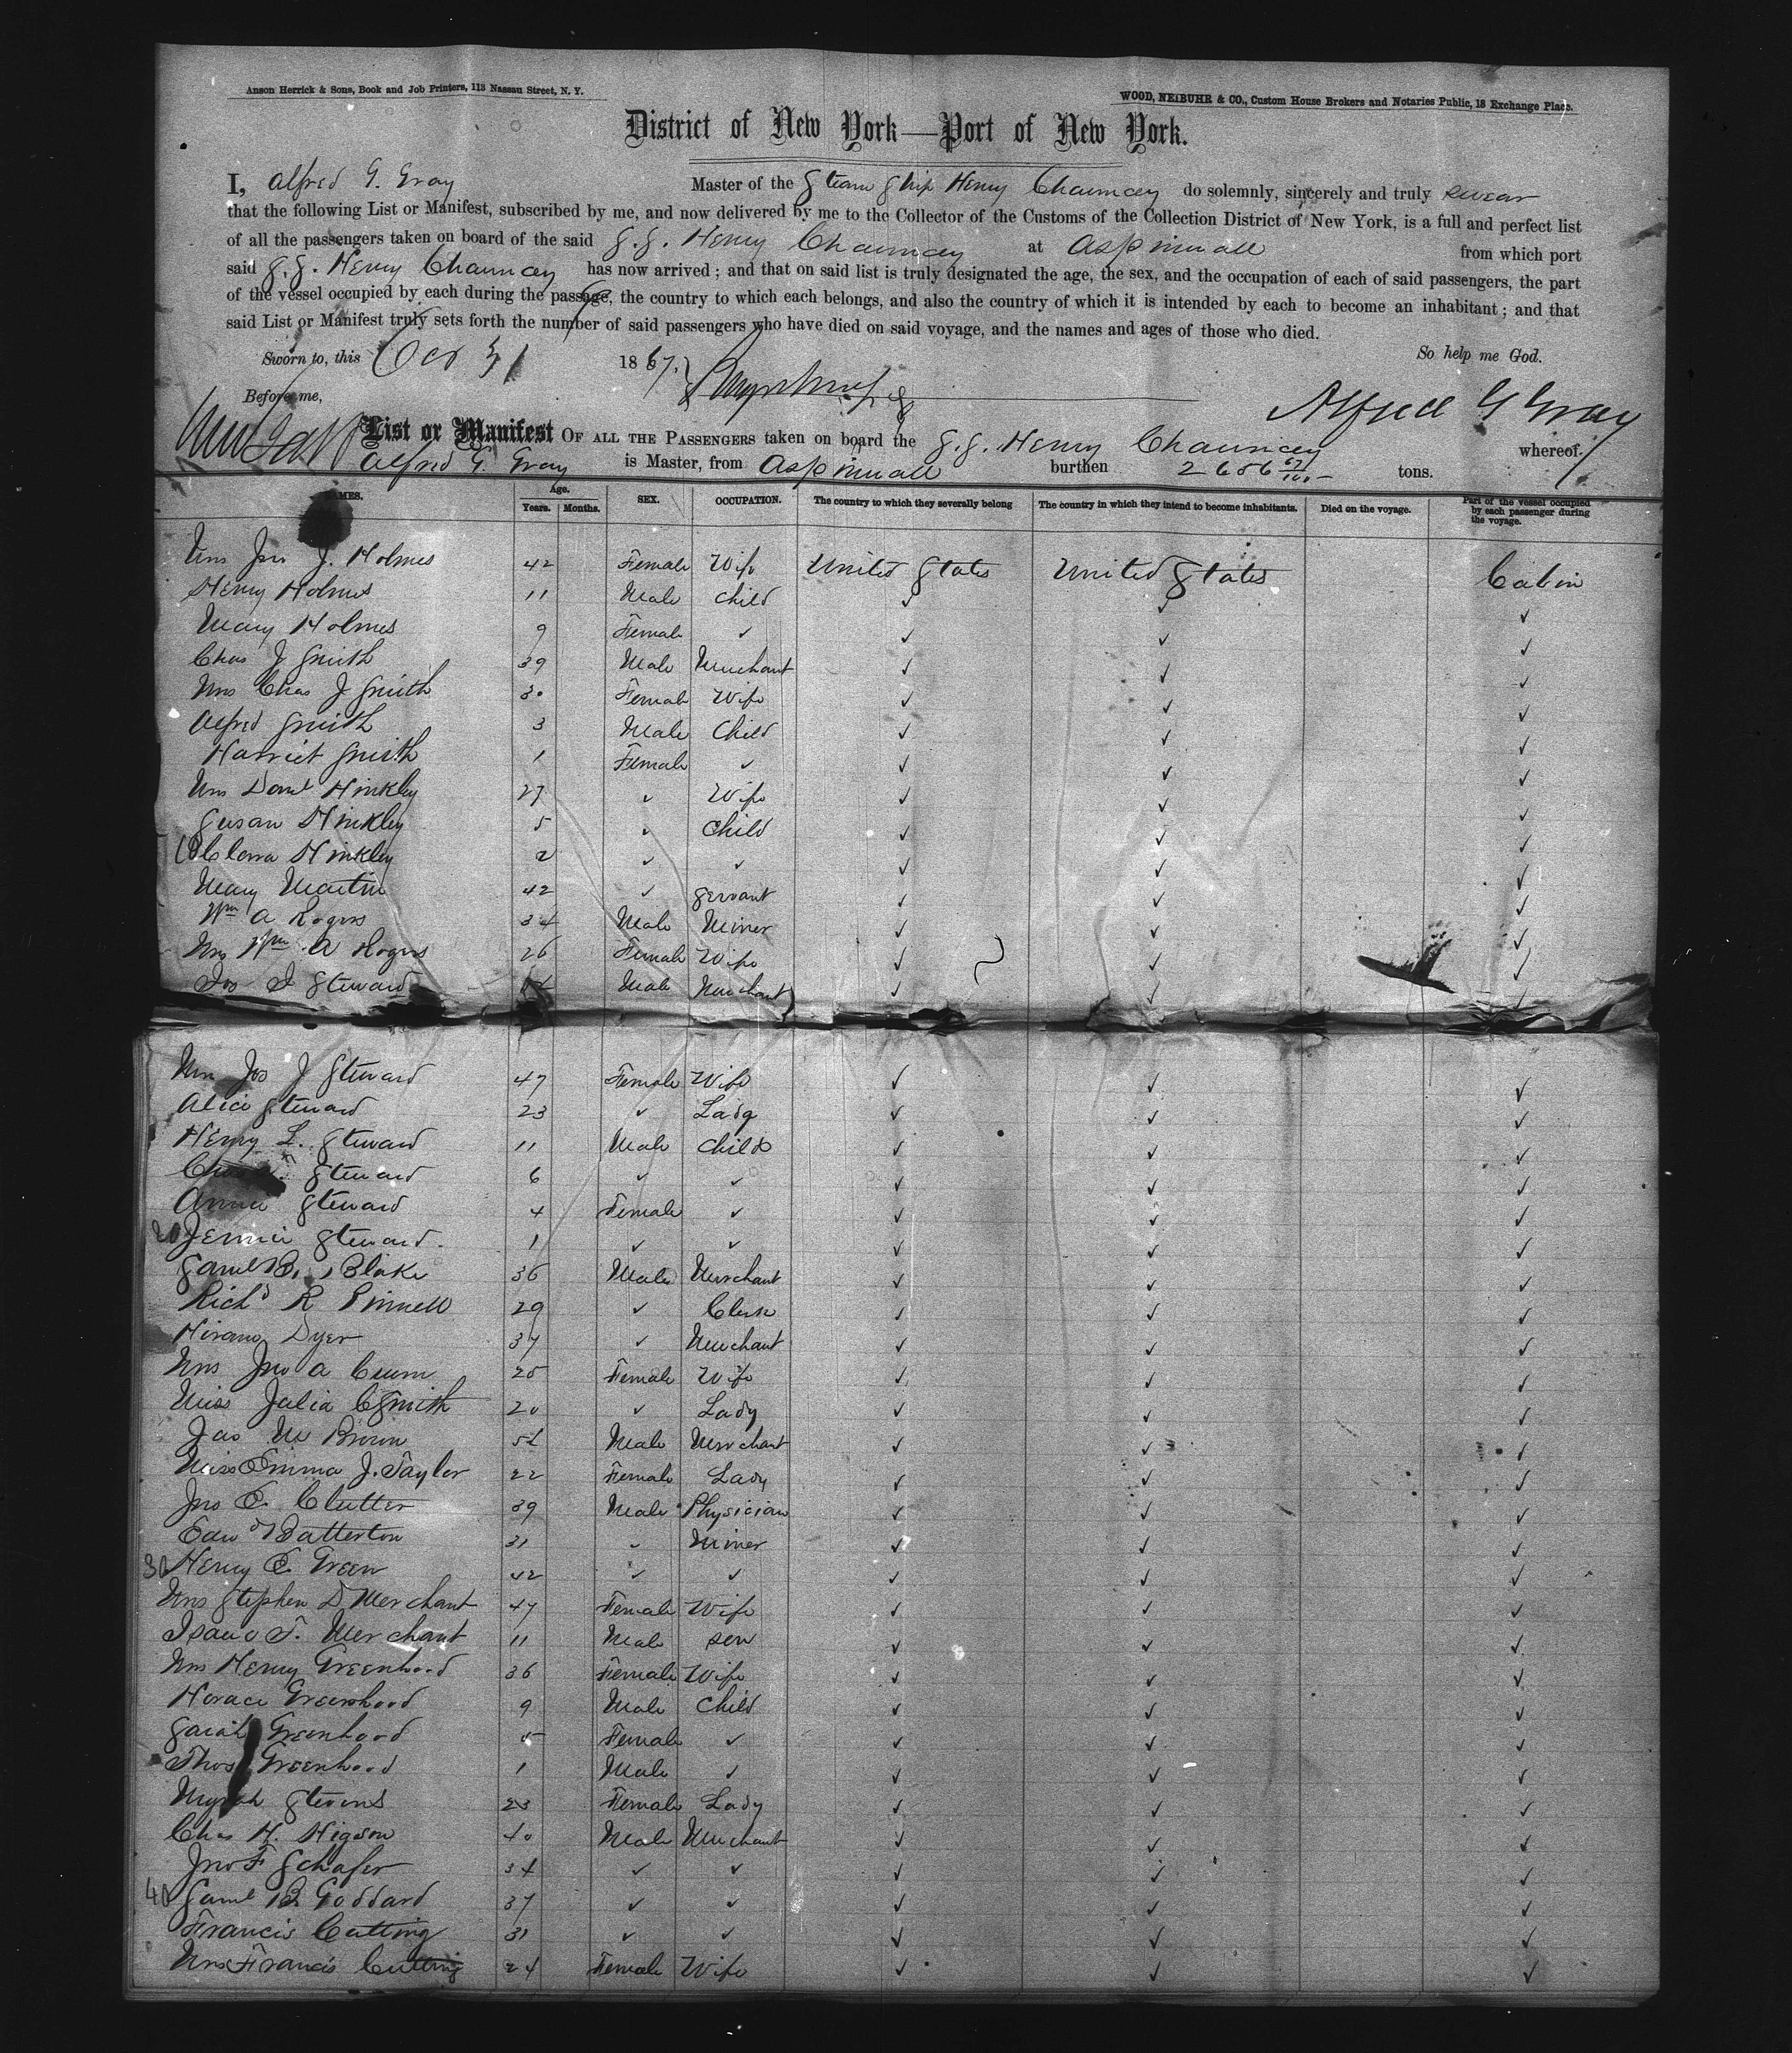 Anson Herrick & Sons, Book and Job Printers, 113 Nassau Street, N. Y.
WOOD, NEIBUHR & CO., Custom House Brokers and Notaries Public, 18 Exchange Place.
District of New York—Port of New York.
I, Alfred G. Gray Master of the Steam Ship Henry Chauncey do solemnly, sincerely and truly swear
that the following List or Manifest, subscribed by me, and now delivered by me to the Collector of the Customs of the Collection District of New York, is a full and perfect list
of all the passengers taken on board of the said S.S. Henry Chauncey at Aspinwall from which port
said S.S. Henry Chauncey has now arrived; and that on said list is truly designated the age, the sex, and the occupation of each of said passengers, the part
of the vessel occupied by each during the passage, the country to which each belongs, and also the country of which it is intended by each to become an inhabitant; and that
said List or Manifest truly sets forth the number of said passengers who have died on said voyage, and the names and ages of those who died.
Sworn to, this Oct 31 1867. So help me God.
Before me, Alfred G Gray
List or Manifest OF ALL THE PASSENGERS taken on board the S.S. Henry Chauncey whereof
Alfred G. Gray is Master, from Aspinwall burthen 2656 67/100 tons.
NAMES. Age. Years. Months. SEX. OCCUPATION. The country to which they severally belong The country in which they intend to become inhabitants. Died on the voyage. Part of the vessel occupied by each passenger during the voyage.
Mrs Jno J. Holmes 42 Female Wife United States United States Cabin
Henry Holmes 11 Male Child ✓ ✓ ✓
Mary Holmes 9 Female ✓ ✓ ✓ ✓
Chas J Smith 39 Male Merchant ✓ ✓ ✓
Mrs Chas J Smith 30 Female Wife ✓ ✓ ✓
Alfred Smith 3 Male Child ✓ ✓ ✓
Harriet Smith 1 Female ✓ ✓ ✓ ✓
Mrs Danl Hinkley 27 ✓ Wife ✓ ✓ ✓
Susan Hinkley 5 ✓ Child ✓ ✓ ✓
10 Clara Hinkley 2 ✓ ✓ ✓ ✓ ✓
Mary Martin 42 ✓ Servant ✓ ✓ ✓
Wm A Rogers 34 Male Miner ✓ ✓ ✓
Mrs Wm A Rogers 26 Female Wife ✓ ✓ ✓
Jos J Steward Male Merchant ✓ ✓ ✓
Mrs Jos J Steward 47 Female Wife ✓ ✓ ✓
Alice Steward 23 ✓ Lady ✓ ✓ ✓
Henry L. Steward 11 Male Child ✓ ✓ ✓
Steward 6 ✓ ✓ ✓ ✓ ✓
Annie Steward 4 Female ✓ ✓ ✓ ✓
20 Jennie Steward. 1 ✓ ✓ ✓ ✓ ✓
Saml B. Blake 36 Male Merchant ✓ ✓ ✓
Richd R Pinnell 29 ✓ Clerk ✓ ✓ ✓
Hiram Dyer 37 ✓ Merchant ✓ ✓ ✓
Mrs Jno A Crum 25 Female Wife ✓ ✓ ✓
Miss Julia C Smith 20 ✓ Lady ✓ ✓ ✓
Jas M Brown 52 Male Merchant ✓ ✓ ✓
Miss Emma J. Taylor 22 Female Lady ✓ ✓ ✓
Jno E. Clutter 39 Male Physician ✓ ✓ ✓
Edwd Batterton 31 ✓ Miner ✓ ✓ ✓
30 Henry E. Green 42 ✓ ✓ ✓ ✓ ✓
Mrs Stephen D Merchant 47 Female Wife ✓ ✓ ✓
Isaac T. Merchant 11 Male Son ✓ ✓ ✓
Mrs Henry Greenhood 36 Female Wife ✓ ✓ ✓
Horace Greenhood 9 Male Child ✓ ✓ ✓
Sarah Greenhood 5 Female ✓ ✓ ✓ ✓
Thos Greenhood 1 Male ✓ ✓ ✓ ✓
Myrah Stevens 23 Female Lady ✓ ✓ ✓
Chas H. Higson 40 Male Merchant ✓ ✓ ✓
Jno F Schafer 34 ✓ ✓ ✓ ✓ ✓
40 Saml B. Goddard 37 ✓ ✓ ✓ ✓ ✓
Francis Cutting 31 ✓ ✓ ✓ ✓ ✓
Mrs Francis Cutting 24 Female Wife ✓ ✓ ✓